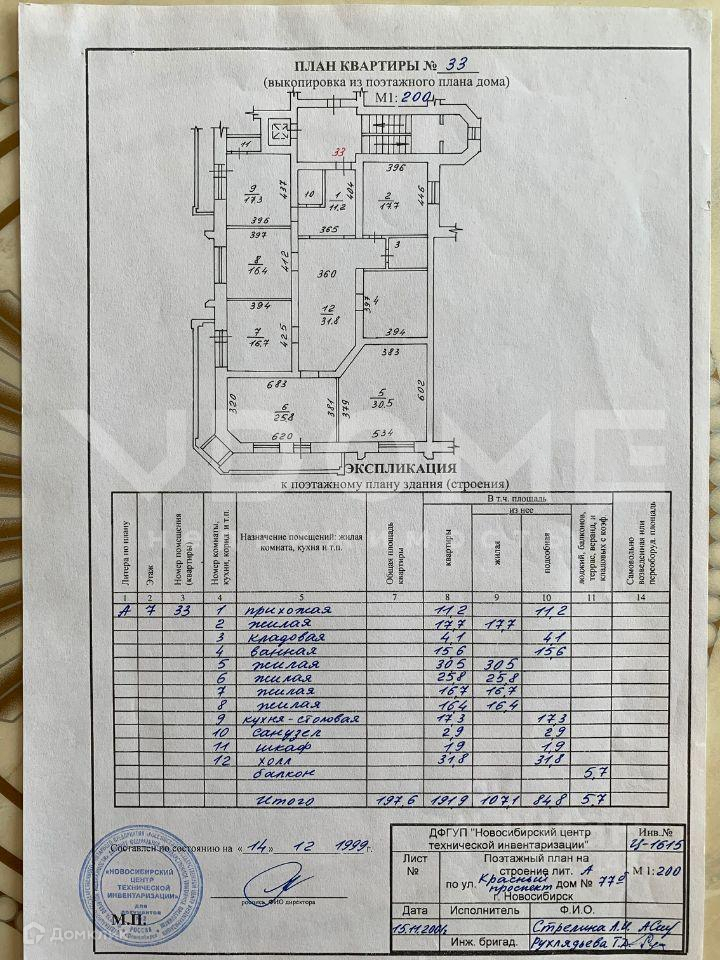 ПЛАН КВАРТИРЫ № 33
(выкопировка из поэтажного плана дома)
М1: 200
33
11
9
17.3
437
396
10
1
11,2
404
365
396
2
17.7
446
397
8
16.4
412
3
360
12
31.8
397
4
394
394
7
16,7
425
383
5
30,5
602
379
534
683
320
6
25.8
381
620
ЭКСПЛИКАЦИЯ
к поэтажному плану здания (строения)
Литера по плану
Этаж
Номер помещения (квартиры)
Номер комнаты, кухни, корид. и т.п.
Назначение помещений: жилая комната, кухня и т.п.
Общая площадь квартиры
В т.ч. площадь
из нее
квартиры
жилая
подсобная
лоджий, балконов, террас, веранд, и кладовых с коэф.
Самовольно возведенная или переоборуд. площадь
1 2 3 4 5 7 8 9 10 11 14
А 7 33 1 прихожая 11,2 11,2
2 жилая 17,7 17,7
3 кладовая 4,1 4,1
4 ванная 15,6 15,6
5 жилая 30,5 30,5
6 жилая 25,8 25,8
7 жилая 16,7 16,7
8 жилая 16,4 16,4
9 кухня-столовая 17,3 17,3
10 санузел 2,9 2,9
11 шкаф 1,9 1,9
12 холл 31,8 31,8
балкон 5,7
Итого 197,6 191,9 107,1 84,8 5,7
Составлен по состоянию на « 14 » 12 1999г.
роспись, ФИО директора
М.П.
«НОВОСИБИРСКИЙ
ЦЕНТР
ТЕХНИЧЕСКОЙ
ИНВЕНТАРИЗАЦИИ»
для
документов
РОССИЯ
ДФГУП "Новосибирский центр
технической инвентаризации"
Инв.№
Ц-1615
Лист
№
Поэтажный план на
строение лит. А
по ул. Красный проспект дом № 77б
г. Новосибирск
М 1: 200
Дата Исполнитель Ф.И.О.
15.11.2001г. Стрелина Л.И.
Инж. бригад. Рухлядьева Т.А.
Домклик